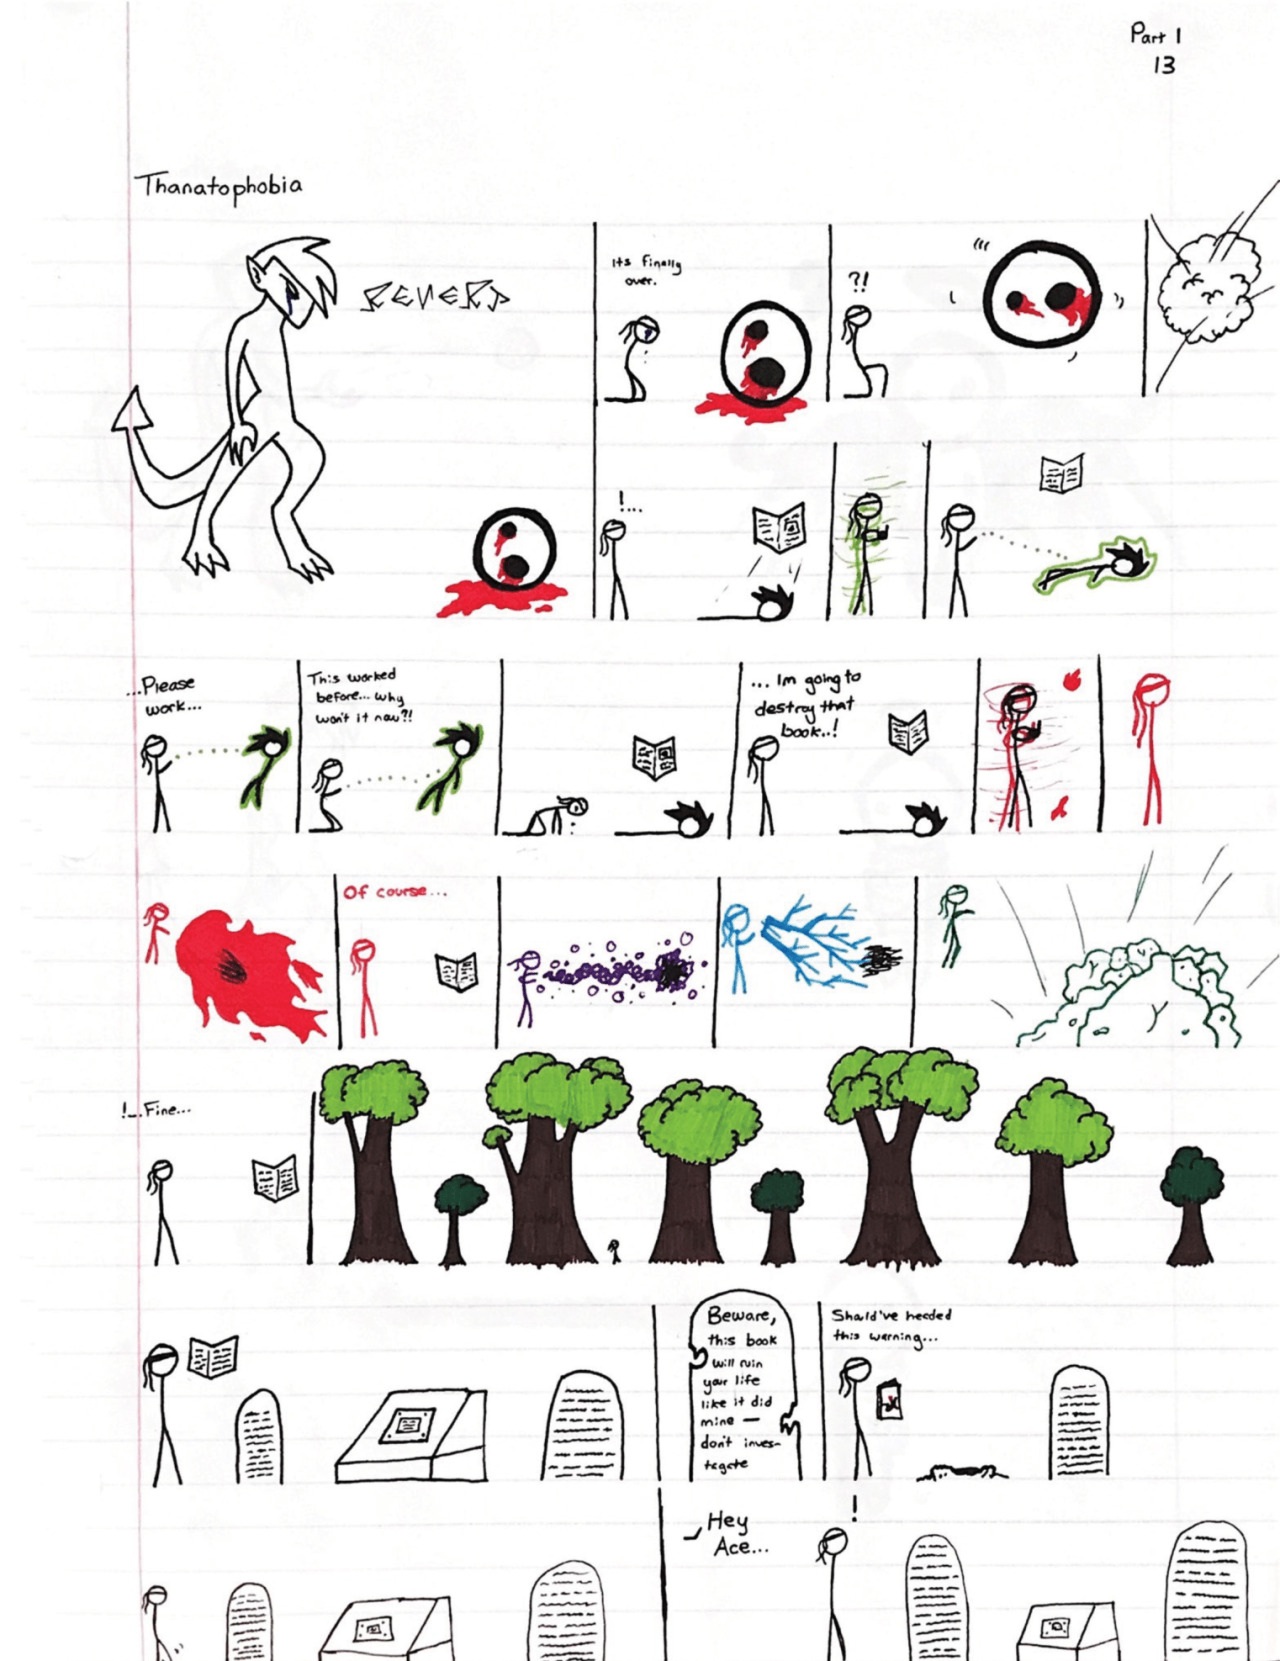 Part 1
13
Thanatophobia
REVERT
Its finally
over.
?!
!...
...Please
work...
This worked
before... why
won't it now?!
... Im going to
destroy that
book..!
Of course...
!...Fine...
Beware,
this book
will ruin
your life
like it did
mine —
don't inves-
tegate
Should've heeded
this warning...
Hey
Ace...
!